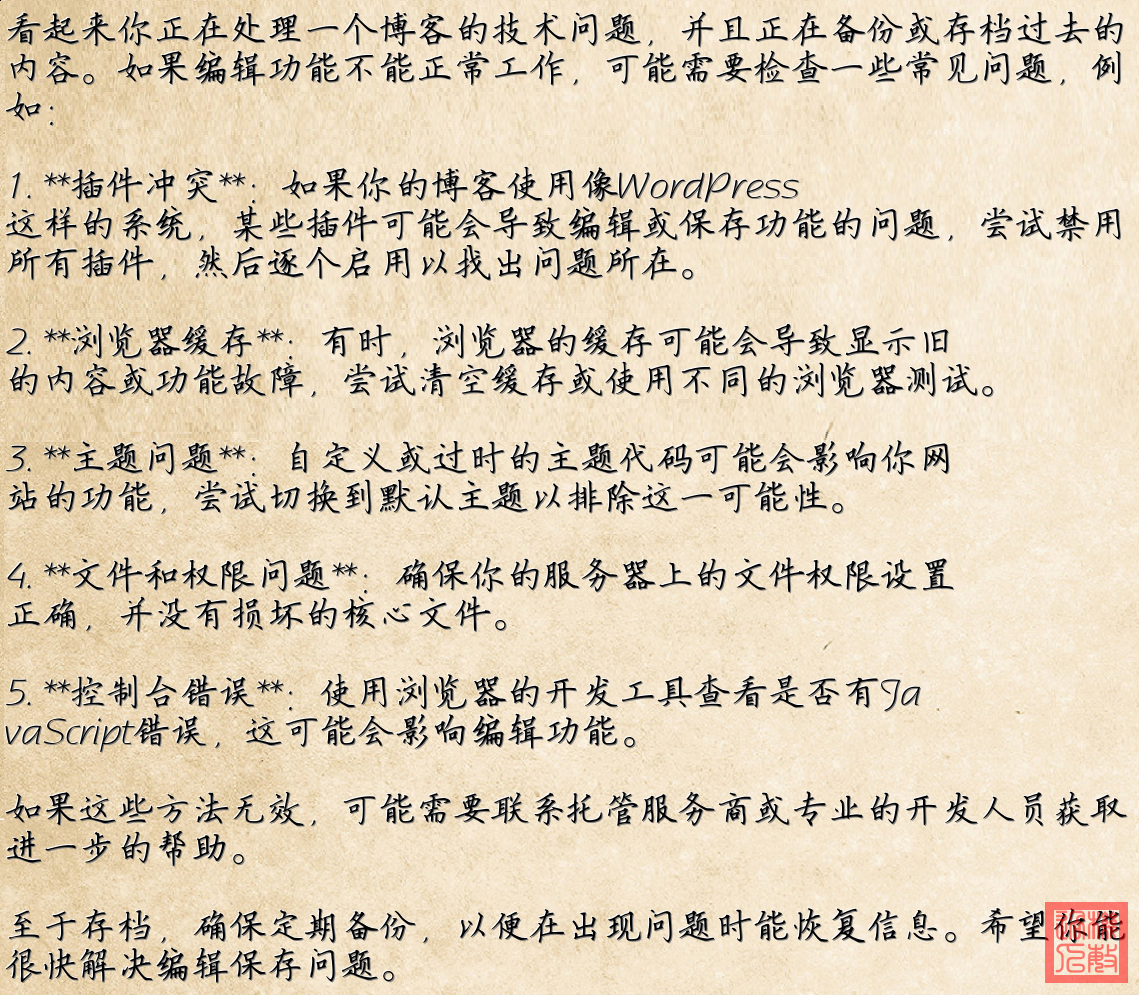 看起来你正在处理一个博客的技术问题，并且正在备份或存档过去的
内容。如果编辑功能不能正常工作，可能需要检查一些常见问题，例
如：
1. **插件冲突**：如果你的博客使用像WordPress
这样的系统，某些插件可能会导致编辑或保存功能的问题，尝试禁用
所有插件，然后逐个启用以找出问题所在。
2. **浏览器缓存**：有时，浏览器的缓存可能会导致显示旧
的内容或功能故障，尝试清空缓存或使用不同的浏览器测试。
3. **主题问题**：自定义或过时的主题代码可能会影响你网
站的功能，尝试切换到默认主题以排除这一可能性。
4. **文件和权限问题**：确保你的服务器上的文件权限设置
正确，并没有损坏的核心文件。
5. **控制台错误**：使用浏览器的开发工具查看是否有Ja
vaScript错误，这可能会影响编辑功能。
如果这些方法无效，可能需要联系托管服务商或专业的开发人员获取
进一步的帮助。
至于存档，确保定期备份，以便在出现问题时能恢复信息。希望你能
很快解决编辑保存问题。